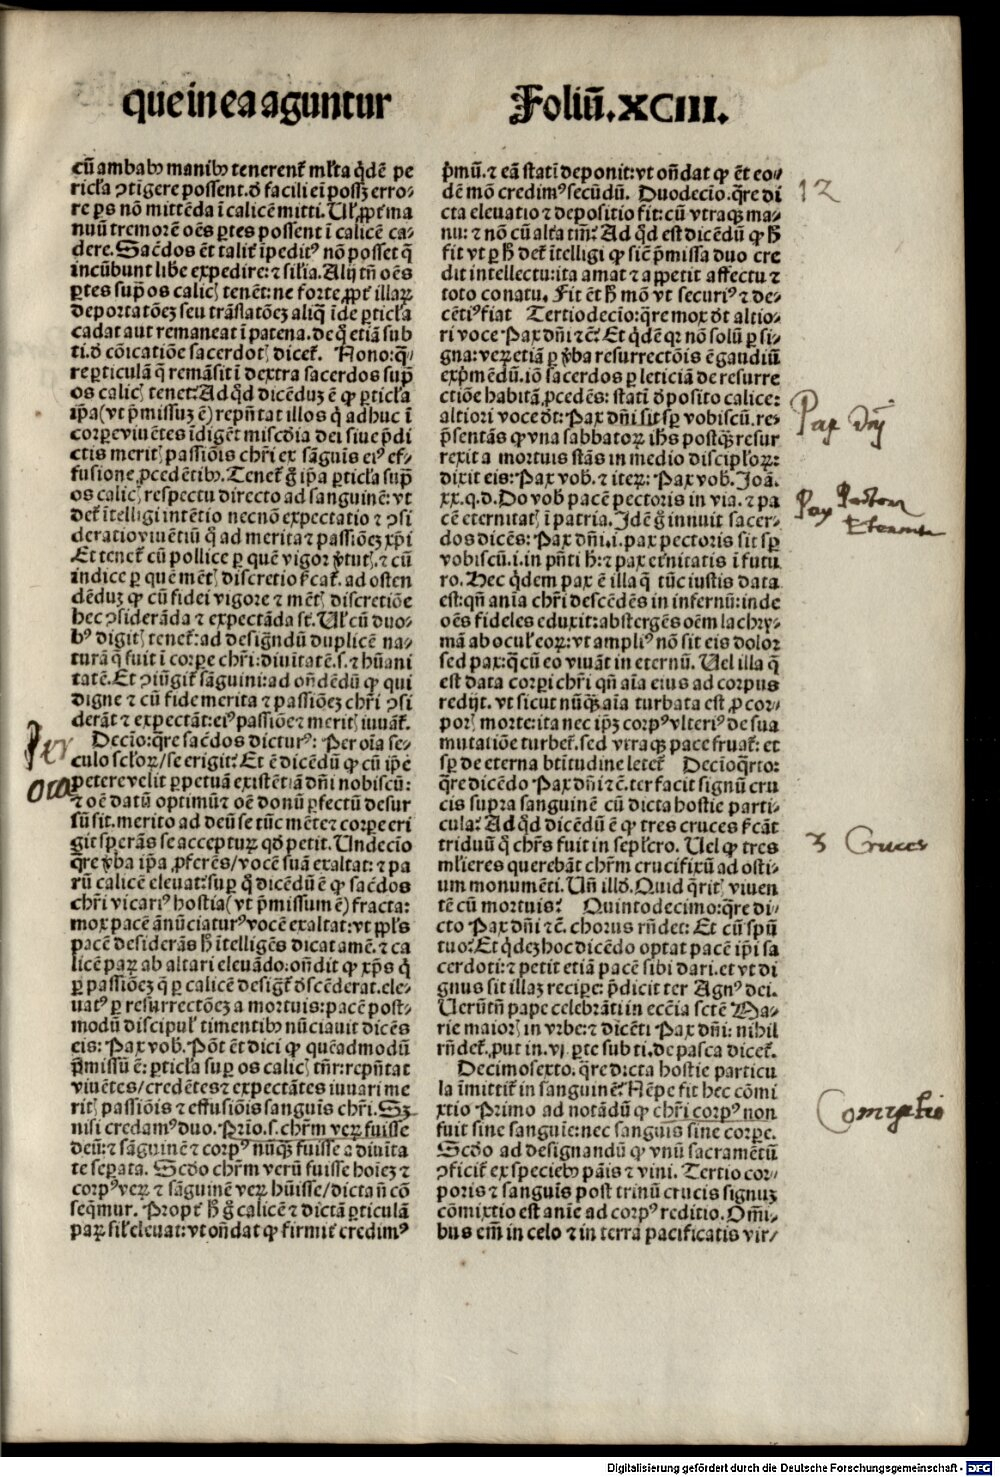 que in ea aguntur
Foliū. XCIII.
cū ambabꝰ manibꝰ tenerent᷑ mlta q̇dē pe
ricl̄a ꝯtīgere possent. d̄ facili ei᷑ posz erro⸗
re p̄s nō mittēda ī calicē mitti. Ul̓. ꝓpt᷑ ma
nuū tremorē oēs ꝑtes possent ī calicē ca⸗
dere. Sac̄dos ēt talit᷑ īpeditꝰ nō posset q̄
incūbunt libe expedire: ⁊ sil̓ia. Alij tn̄ oēs
ꝑtes sup̄ os calicꝭ tenēt: ne forte ꝓpt᷑ illaꝝ
deportatōeꝫ seu trāslatōeꝫ aliq̄ īde ꝑticl̄a
cadat aut remaneat ī patena. de q̄ etiā sub
ti. d̄ cōicatiōe sacerdotꝭ dicet᷑. Nono: q̄⸗
re ꝑticulā q̄ remāsit ī dextra sacerdos sup̄
os calicꝭ tenet: Ad qd̄ dicēduꝫ ē ꝙ ꝑticl̄a
ip̄a (vt p̄missuꝫ ē) repn̄tat illos q̇ adhuc ī
corꝑe viuētes īdigēt misc̄dia dei siue p̄di
ctis meritꝭ passiōis chr̄i ex sāguīs eiꝰ ef⸗
fusione ꝓcedētibꝰ. Tenet᷑ g̊ ip̄a ꝑticl̄a sup̄
os calicꝭ respectu directo ad sanguinē: vt
det᷑ ītelligi intētio necnō expectatio ⁊ ꝯsi
deratio viuētiū q̄ ad merita ⁊ passiōeꝫ xp̄i
Et tenet᷑ cū pollice per quē vigor v̓tutꝭ, ⁊ cū
indice ꝑ quē mētꝭ discretio s̓cat᷑. ad osten
dēduꝫ ꝙ cū fidei vigore ⁊ mētꝭ discretiōe
hec ꝯsiderāda ⁊ expectāda st̄. Ul̓ cū duo⸗
bꝰ digitꝭ tenet᷑: ad designdū duplicē na⸗
turā q̄ fuit ī corꝑe chr̄i: diuītatē. s. ⁊ hūani
tatē. Et ꝯiūgit᷑ sāguini: ad on̄dēdū ꝙ qui
digne ⁊ cū fide merita ⁊ passiōeꝫ chr̄i ꝯsi
derāt ⁊ expectāt: eiꝰ passiōe ⁊ meritꝭ iuuāt᷑.
Decīo: q̄re sac̄dos dicturꝰ: Per oīa se⸗
culo scl̓oꝝ/ se erigit: Et ē dicēdū ꝙ cū ip̄e
petere velit ꝑpetuā existētiā dn̄i nobiscū:
⁊ oē datū optimū ⁊ oē donū ꝑfectū desur
sū sit. merito ad deū se tūc mēte ⁊ corꝑe eri
git sperās se accepturꝫ qd̄ petit. Undecīo
q̄re v̓ba ip̄a ꝓferēs/ vocē suā exaltat: ⁊ pa
rū calicē eleuat: sup̄ q̊ dicēdū ē ꝙ sac̄dos
chr̄i vicariꝰ hostia (vt p̄missum ē) fracta:
mox pacē ānūciaturꝰ vocē exaltat: vt pp̄ls
pacē desiderās h̄ ītelligēs dicat amē. ⁊ ca
licē paꝝ ab altari eleuādo: on̄dit ꝙ xp̄s q̇
ꝑ passiōeꝫ q̄ ꝑ calicē desigt᷑ d̓scēderat. ele⸗
uatꝰ ꝑ resurrectōeꝫ a mortuis: pacē post⸗
modū discipul̓ timentibꝰ nūciauit dicēs
eis: Pax vob̓. Pōt ēt dici ꝙ quēadmodū
p̄missū ē: ꝑticl̄a suꝑ os calicꝭ tn̄t: repn̄tat
viuētes/ credētes ⁊ expectātes iuuari me
ritꝭ passiōis ⁊ effusiōis sanguīs chr̄i. Sꝫ
nisi credamꝰ duo. Prīo. s. chr̄m veꝝ fuisse
deū: ⁊ sāguinē ⁊ corpꝰ nūq̄ꝫ fuisse a diuīta
te seꝑata. Sc̄do chr̄m verū fuisse hoīeꝫ ⁊
corpꝰ veꝝ ⁊ sāguinē veꝝ hūisse/ dicta n̄ cō
seq̄mur. Propt᷑ h̄ g̊ calicē ⁊ dictā ꝑticulā
paꝝ sil̓ eleuat: vt on̄dat ꝙ firmit᷑ credimꝰ
Per
oīa
p̄mū. ⁊ eā statī deponit: vt on̄dat ꝙ ēt eo⸗
dē mō credimꝰ secūdū. Duodecīo. q̄re di
cta eleuatio ⁊ depositio fit: cū vtraqꝫ ma⸗
nu: ⁊ nō cū alt̓a tm̄: Ad qd̄ est dicēdū ꝙ h̄
fit vt per h̄ det᷑ ītelligi ꝙ sic̄ p̄missa duo cre
dit intellectu: ita amat ⁊ appetit affectu ⁊
toto conatu. Fit ēt h̄ mō vt securiꝰ ⁊ de⸗
cētiꝰ fiat Tertiodecīo: q̄re mox d̓t altio⸗
ri voce Pax dn̄i ⁊ c̄: Et q̇dē qꝛ nō solū ꝑ si⸗
gna: veꝝ etiā ꝑ v̓ba resurrectōis ē gaudiū
exp̄mēdū. iō sacerdos ꝑ leticiā de resurre
ctiōe habitā ꝓcedēs: statī d̓ posito calice:
altiori voce d̓t: Pax dn̄i sit sp̄ vobiscū. re⸗
p̄sentās ꝙ vna sabbatoꝝ ih̄s postq̄ꝫ resur
rexit a mortuis stās in medio discipl̓oꝝ:
dixit eis: Pax vob̓. ⁊ iteꝝ: Pax vob̓. Joā.
xx. q. d. Do vob̓ pacē pectoris in via. ⁊ pa
cē eternitatꝭ ī patria. Jdē g̊ innuit sacer⸗
dos dicēs: Pax dn̄i. i. pax pectoris sit sp̄
vobiscū. i. in pn̄ti h̓: ⁊ pax et̓nitatis ī futu
ro. Hec q̇dem pax ē illa q̄ tūc iustis data
est: qn̄ anīa chr̄i descēdēs in infernū: inde
oēs fideles eduxit: abstergēs oēm lachry⸗
mā ab ocul̓ eoꝝ: vt ampliꝰ nō sit eis dolor
sed pax: q̄ cū eo viuāt in eternū. Uel illa q̄
est data corꝑi chr̄i qn̄ aīa eius ad corpus
redijt. vt sicut nūq̄ꝫ aīa turbata est ꝓ cor⸗
porꝭ morte: ita nec ipꝫ corpꝰ vlteriꝰ de sua
mutatiōe turbet᷑. sed vtraqꝫ pace fruat᷑: et
sp̄ de eterna btītudine letet᷑ Decīoq̄rto:
q̄re dicēdo Pax dn̄i ⁊ c̄. ter facit signū cru
cis supra sanguinē cū dicta hostie parti⸗
cula: Ad qd̄ dicēdū ē ꝙ tres cruces s̓cāt
triduū q̊ chr̄s fuit in sepl̓cro. Uel ꝙ tres
ml̓ieres querebāt chr̄m crucifixū ad osti⸗
um monumēti. Uñ illd̓. Quid q̄ritꝭ viuen
tē cū mortuis: Quintodecimo: q̄re di⸗
cto Pax dn̄i ⁊ c̄. chorus rn̄det: Et cū spū
tuo: Et q̇deꝫ hoc dicēdo optat pacē ip̄i sa
cerdoti: ⁊ petit etiā pacē sibi dari. et vt di
gnus sit illaꝫ recipe: p̄dicit ter Agnꝰ dei.
Uerūtn̄ pape celebrāti in ecc̄ia sctē Ma⸗
rie maiorꝭ in vrbe: ⁊ dicēti Pax dn̄i: nihil
rn̄det᷑. ꝓut in. vj ꝑte sub ti. de pasca dicet᷑.
Decimosexto. q̄re dicta hostie particu
la īmittit᷑ in sanguinē: Nēpe fit hec cōmi
xtio Primo ad notādū ꝙ chr̄i corpꝰ non
fuit sine sanguīe: nec sanguis sine corꝑe.
Sc̄do ad designandū ꝙ vnū sacramētū
ꝯficit᷑ ex speciebꝰ pāis ⁊ vini. Tertio cor⸗
poris ⁊ sanguīs post trinū crucis signuꝫ
cōmixtio est anīe ad corpꝰ reditio. Om̄i⸗
bus em̄ in celo ⁊ in terra pacificatis vir⸗
12
Pax dnj
Pax Pectoris
Eternita
3 Cruces
Comixtio
Digitalisierung gefördert durch die Deutsche Forschungsgemeinschaft - DFG